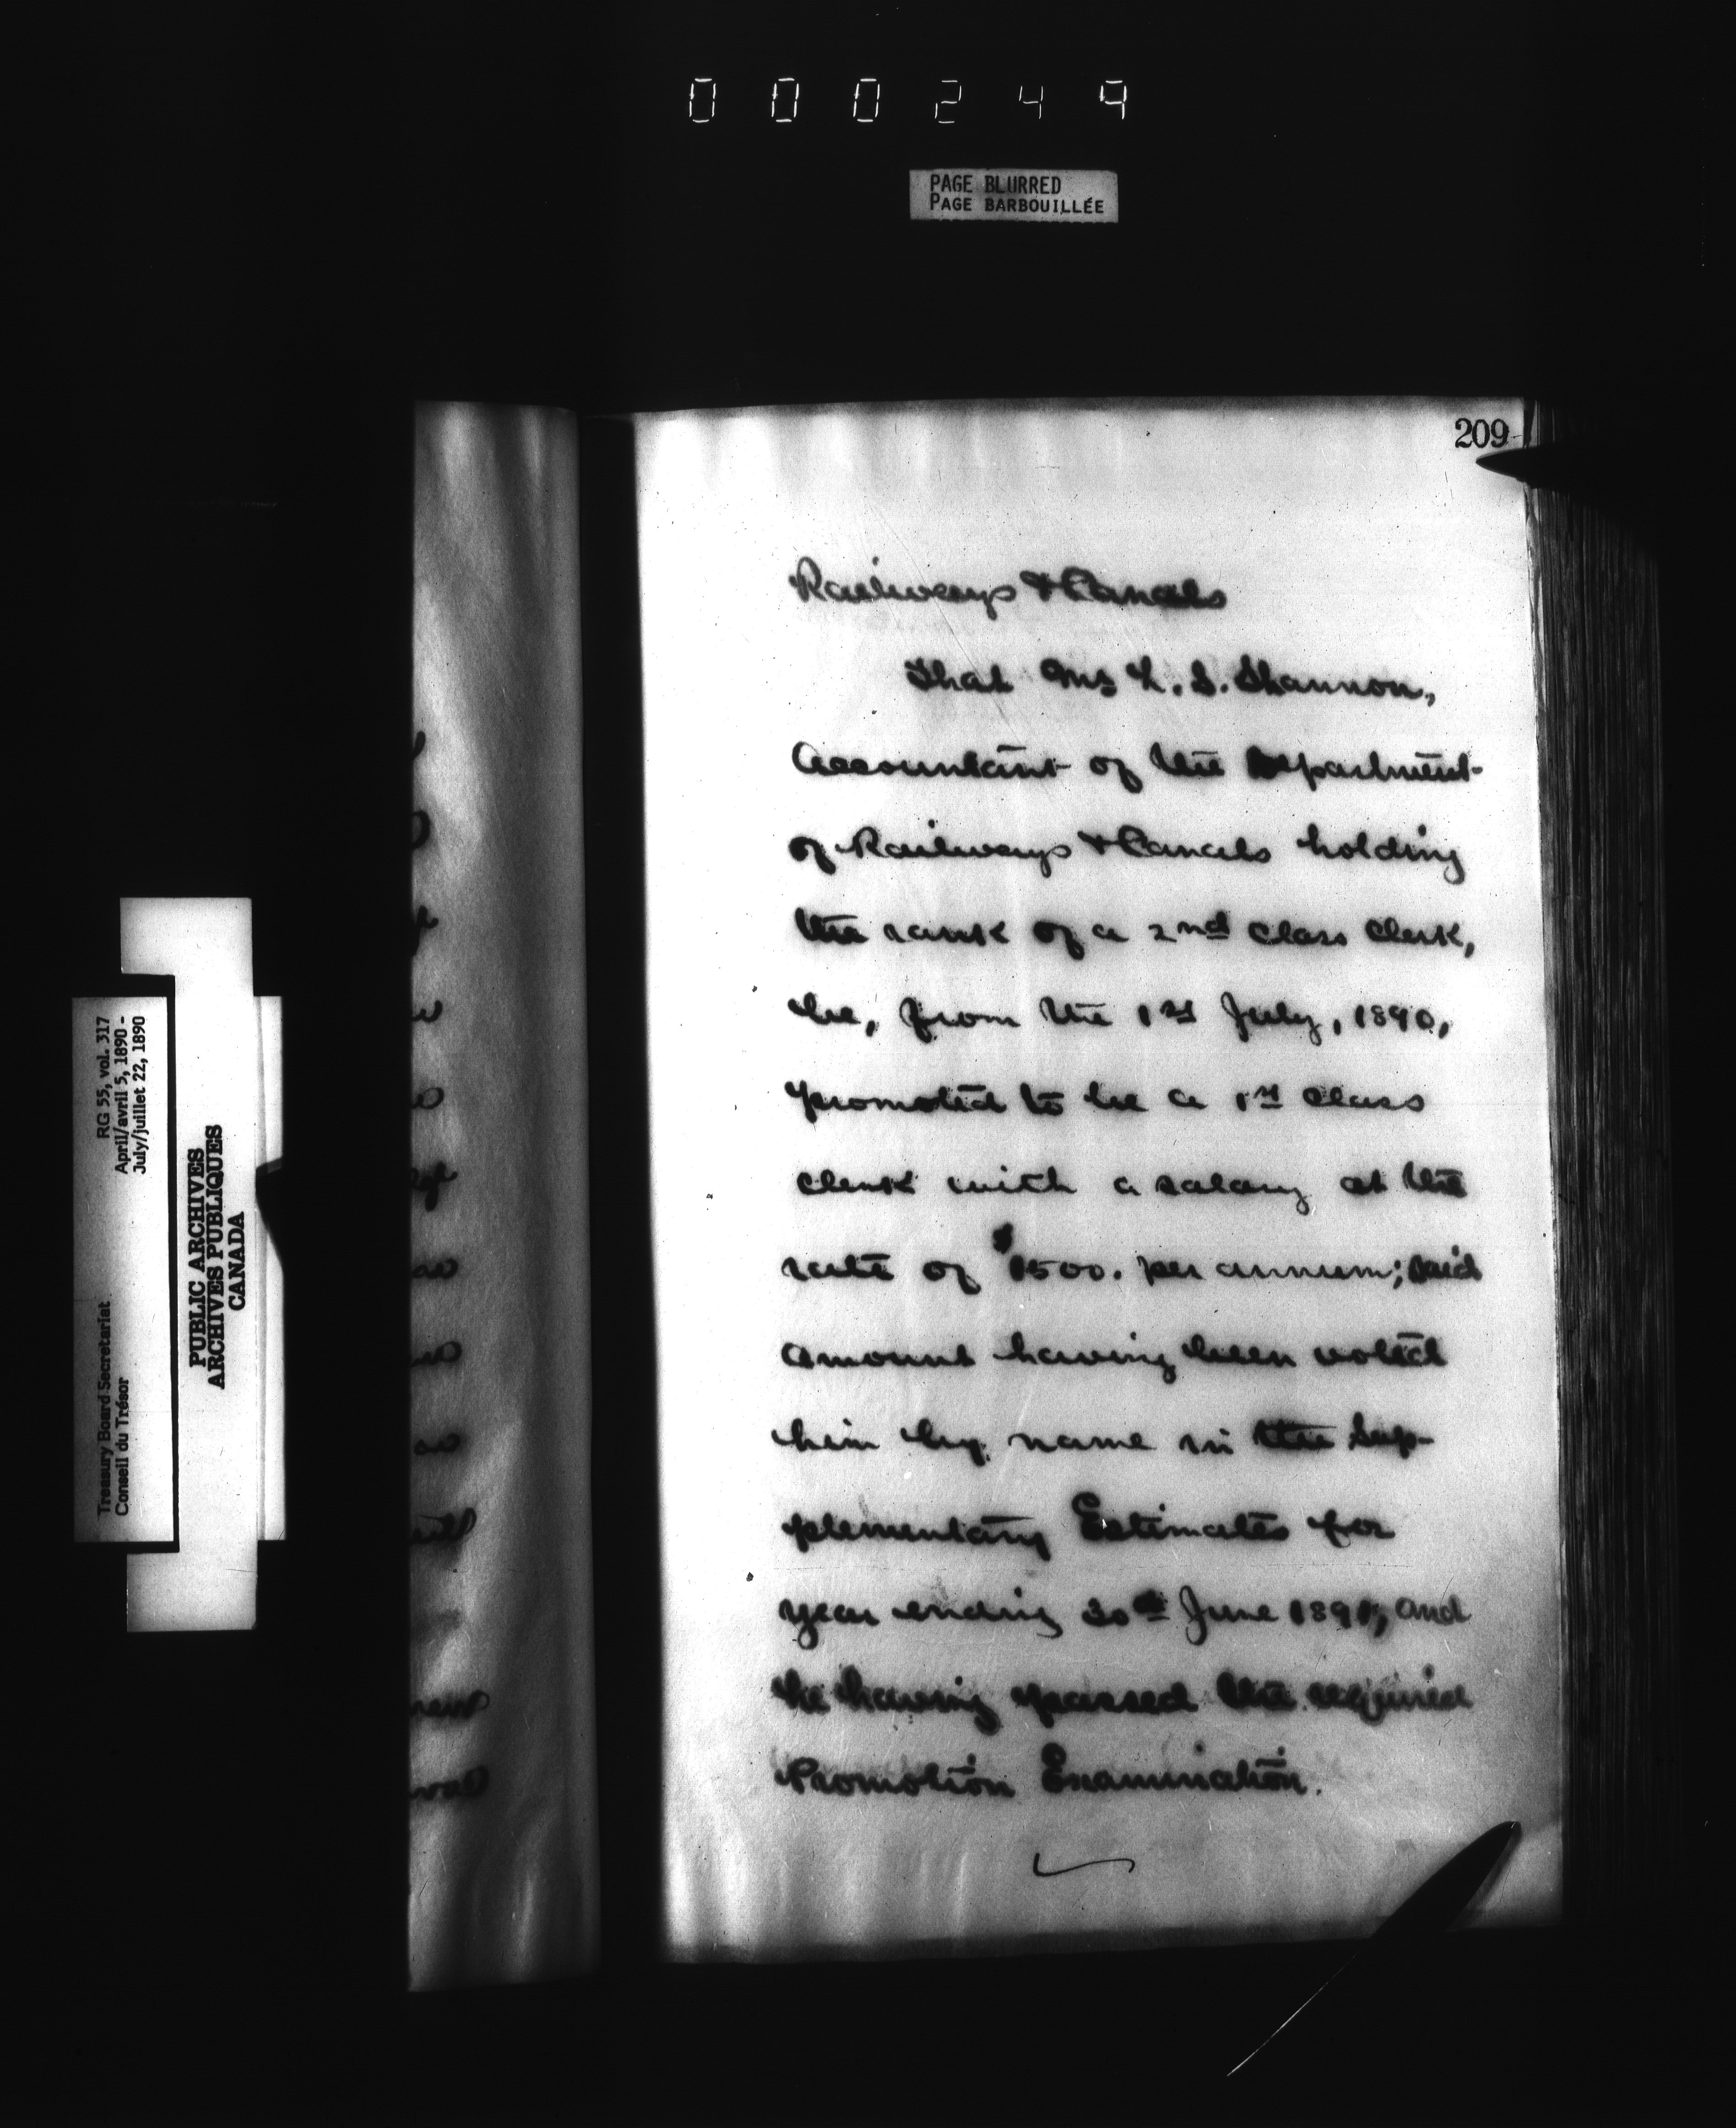 000249
PAGE BLURRED
PAGE BARBOUILLÉE
209
Railways & Canals
That Mr L. S. Shannon,
Accountant of the Department
of Railways & Canals holding
the rank of a 2nd Class Clerk,
be, from the 1st July, 1890,
promoted to be a 1st Class
Clerk with a salary at the
rate of $1500. per annum; said
amount having been voted
him by name in the Sup-
plementary Estimates for
year ending 30th June 1891, and
he having passed the required
Promotion Examination.
RG 55, vol. 317
April/avril 5, 1890 -
July/juillet 22, 1890
Treasury Board Secretariat
Conseil du Trésor
PUBLIC ARCHIVES
ARCHIVES PUBLIQUES
CANADA